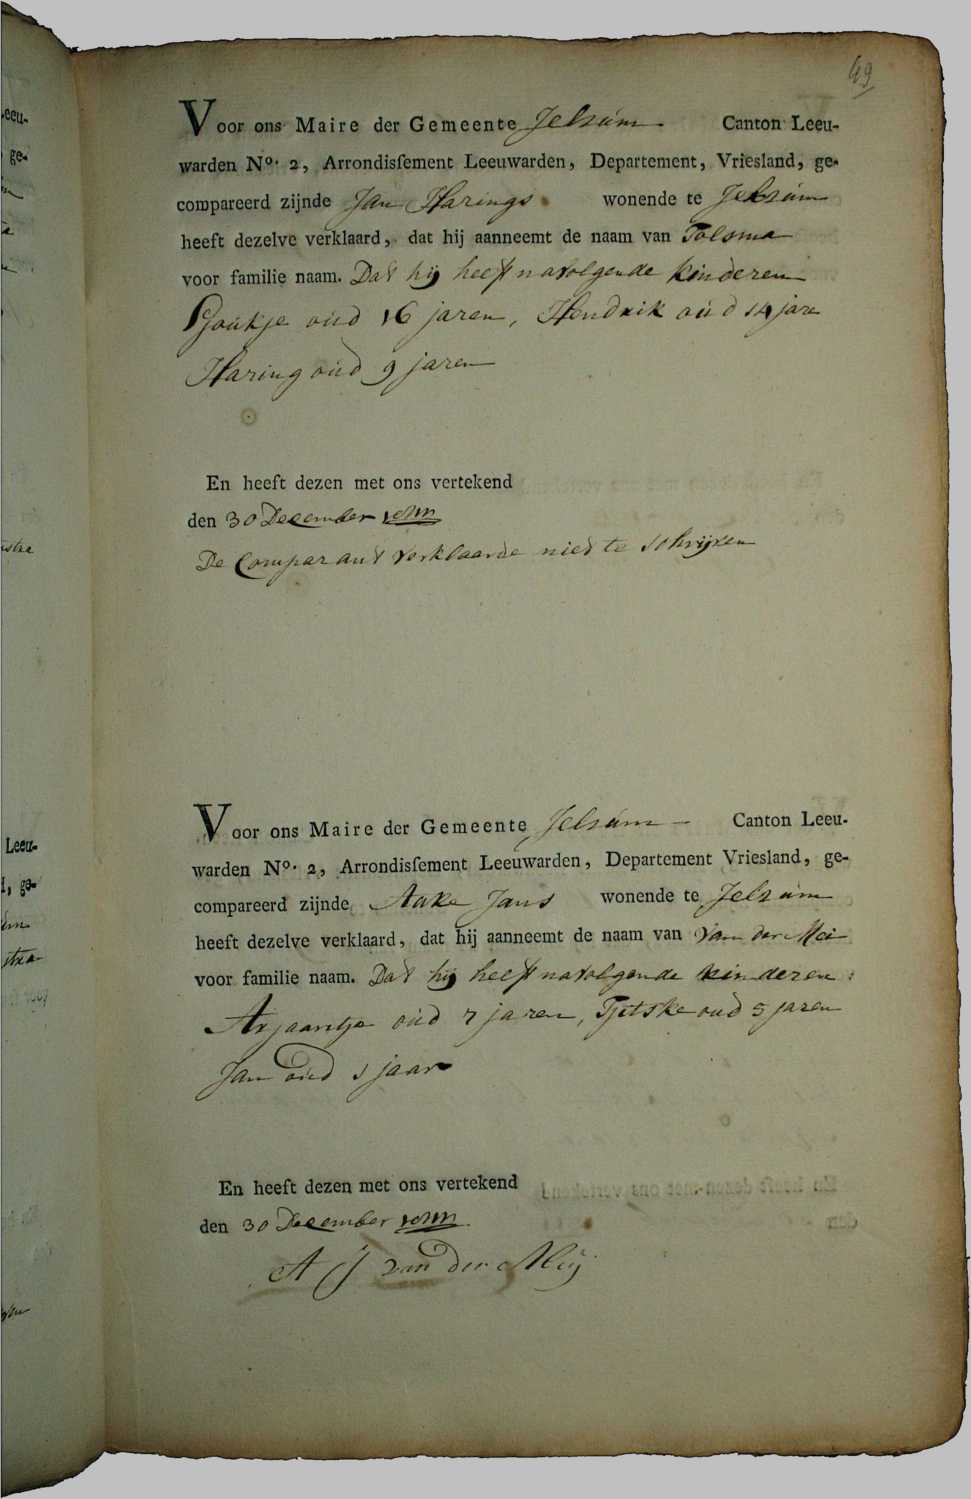 49
Voor ons Maire der Gemeente Jelsúm Canton Leeu-
warden No. 2, Arrondissement Leeuwarden, Departement, Vriesland, ge-
compareerd zijnde Jan Harings wonende te Jelsúm
heeft dezelve verklaard, dat hij aanneemt de naam van Tolsma
voor familie naam. Dat hij heeft navolgende kinderen
Sjoukje oúd 16 jaren, Hendrik oúd 14 jare
Haring oúd 9 jaren
En heeft dezen met ons vertekend
den 30 December
De Comparant verklaarde niet te schrijven
Voor ons Maire der Gemeente Jelsúm Canton Leeu-
warden No. 2, Arrondissement Leeuwarden, Departement Vriesland, ge-
compareerd zijnde Auke Jans wonende te Jelsúm
heeft dezelve verklaard, dat hij aanneemt de naam van Van der Mei
voor familie naam. Dat hij heeft navolgende kinderen
Arjaantje oúd 7 jaren, Tjitske oúd 5 jaren
Jan oúd 1 jaar
En heeft dezen met ons vertekend
den 30 December
A J van der Meij